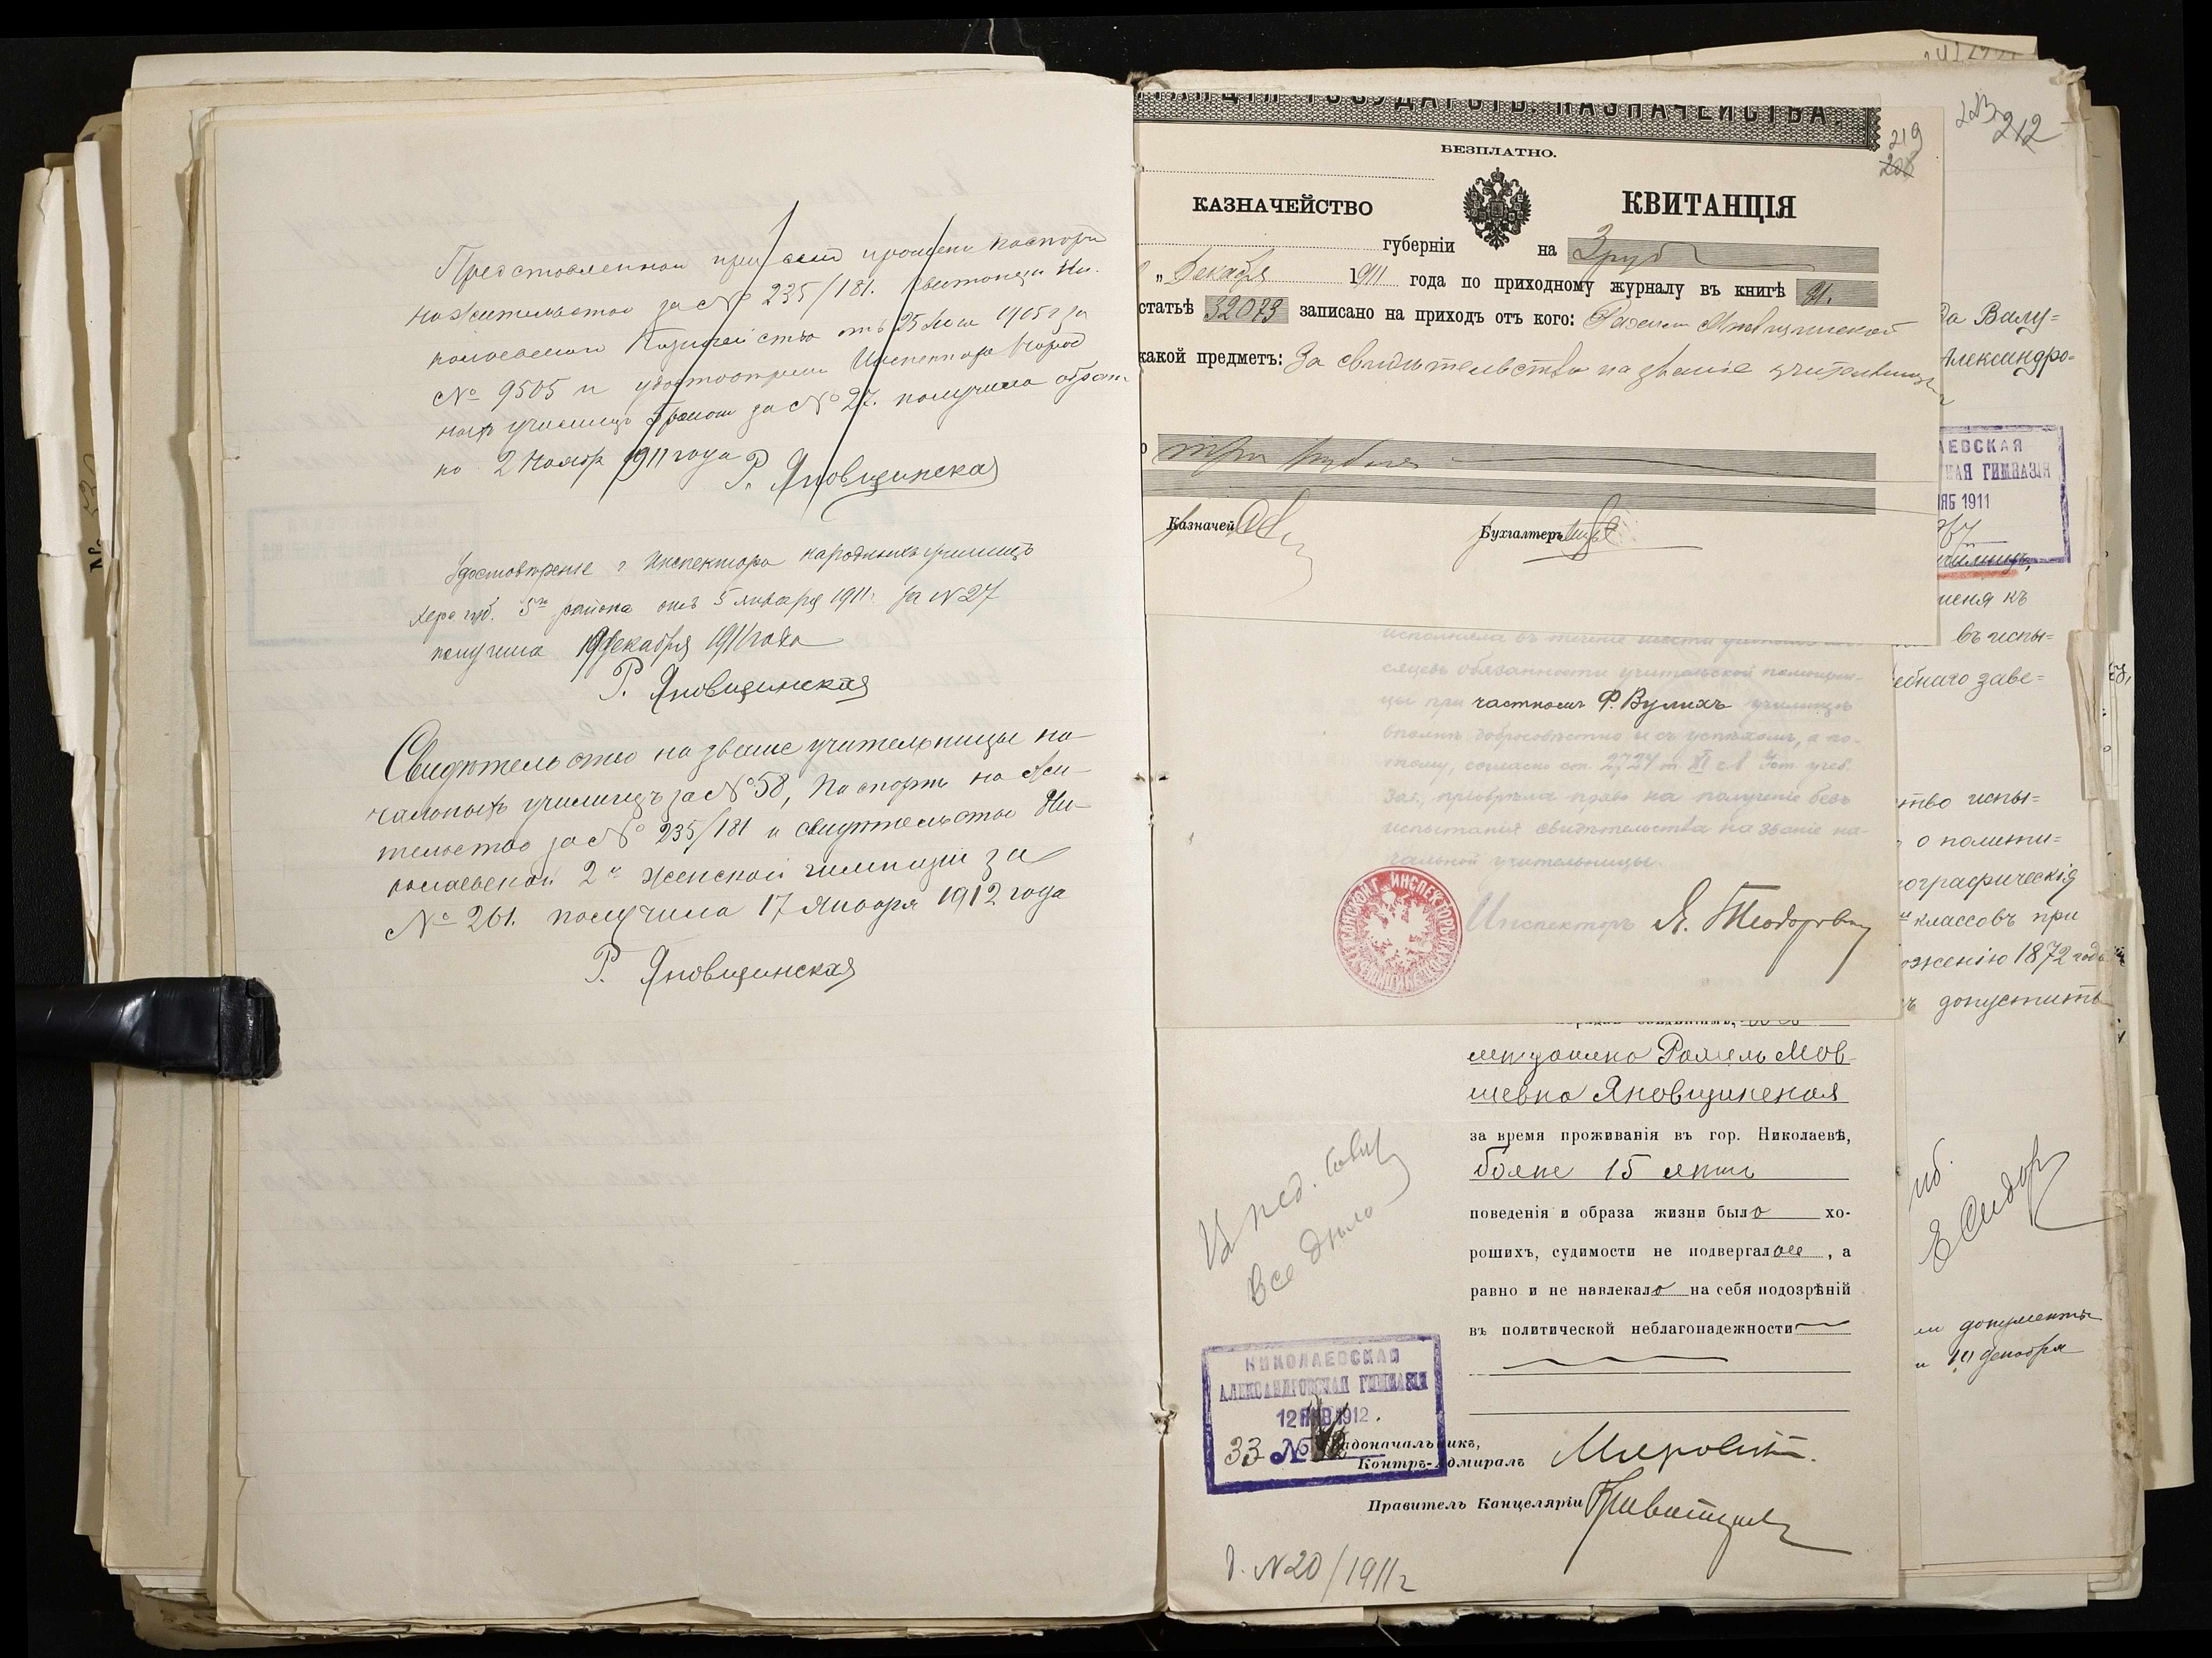 Представленный при сем прошении паспорт
на жительство за № 235/181. Квитанцiи Ни-
колаевскаго Казначейства отъ 25 1905 г за
№ 9505 и удостовѣренiе Инспектора Народ
ныхъ училищъ за № 27. получила обратно
2 Ноября 1911 года
Р. Яновщинская
Удостовѣренiе г Инспектора народныхъ училищъ
Херс губ. 5го района отъ 5 января 1911 г. за N 27
получила 19 декабря 1911 года
Р. Яновщинская
Свидѣтельство на званiе учительницы на-
чальныхъ училищъ за № 58, Паспортъ на жи-
тельство за № 235/181 и свидѣтельство Ни-
колаевской 2й женской гимназiи за
№ 261. получила 17 Января 1912 года
Р. Яновщинская
КВИТАНЦIЯ ГОСУДАРСТВ. КАЗНАЧЕЙСТВА.
219
БЕЗПЛАТНО.
КАЗНАЧЕЙСТВО
КВИТАНЦIЯ
губернiи на 3 руб
„ Декабря 1911 года по приходному журналу въ книгѣ 21.
статьѣ 32073 записано на приходъ отъ кого: Рахили Яновщинской
какой предметъ: За свидѣтельство на званiе учительницы
три рубля
Казначей
Бухгалтеръ
исполняла въ теченiе шести
сяцевъ обязанности учительской помощни-
цы при частномъ Ф. Вулихъ училищѣ
вполнѣ добросовѣстно и съ успѣхомъ, а по-
тому, согласно ст. 2724 т. XI ч. 1 Уст. учеб.
Зав., прiобрѣла право на полученiе безъ
испытанiя свидѣтельства на званiе на-
чальной учительницы.
Инспекторъ Я. Теодорович
мѣщанка Рахиль Мов-
шевна Яновщинская
за время проживанiя въ гор. Николаевѣ,
болѣе 15 лѣтъ
поведенiя и образа жизни была хо-
рошихъ, судимости не подвергалась, а
равно и не навлекала на себя подозрѣнiй
въ политической неблагонадежности
Въ пед. совѣт
все дѣло
НИКОЛАЕВСКАЯ
АЛЕКСАНДРОВСКАЯ ГИМНАЗIЯ
12 ЯНВ 1912.
33 №
Градоначальникъ,
Контръ-Адмиралъ
Правитель Канцелярiи
д. N 20/1911 г
212
Валу=
Александро-
АЕВСКАЯ
КАЯ ГИМНАЗIЯ
ЯБ 1911
училищъ,
меня къ
въ испы=
ебнаго заве=
ство испы=
о полити=
ографическiя
классовъ при
оженiю 1872 года
допустить
Е Сидор
документы
19 декабря